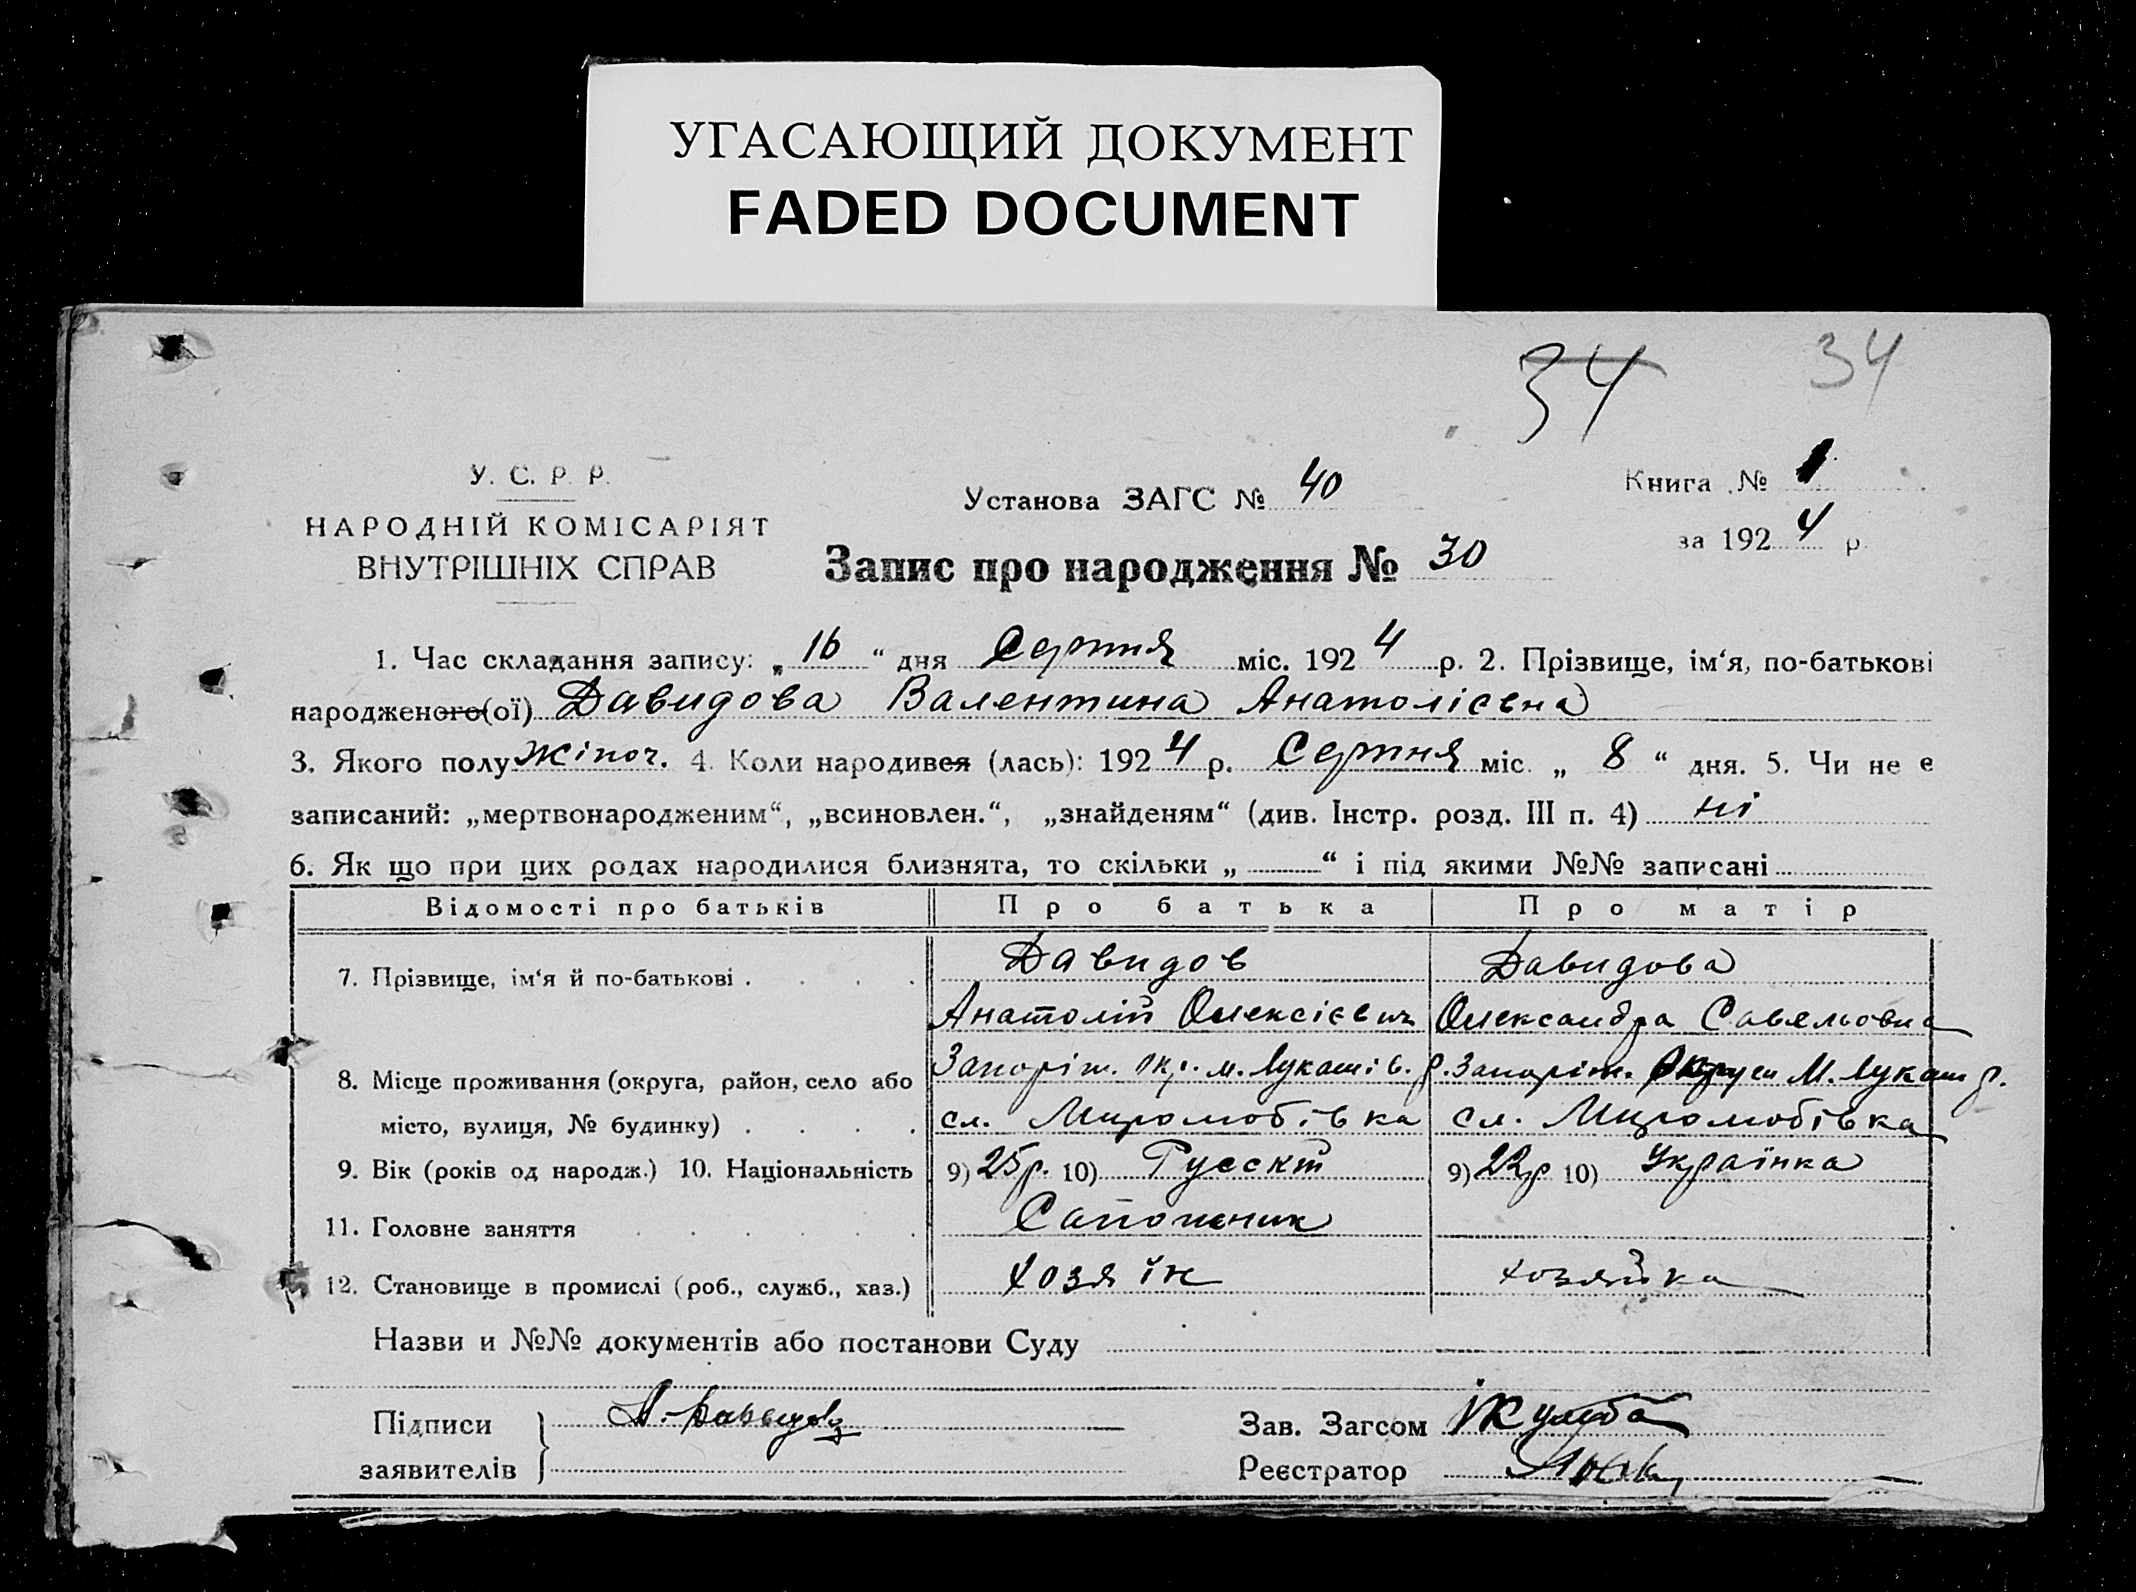 УГАСАЮЩИЙ ДОКУМЕНТ
FADED DOCUMENT
34 34
У. С. Р. Р.
НАРОДНІЙ КОМІСАРІЯТ
ВНУТРІШНІХ СПРАВ
Установа ЗАГС № 40
Книга № 1
за 1924 р.
Запис про народження № 30
1. Час складання запису: „16“ дня Серпня міс. 1924 р. 2. Прізвище, ім‘я, по-батькові
народженого(ої) Давидова Валентина Анатолієвна
3. Якого полу жіноч. 4. Коли народився (лась): 1924 р. Серпня міс. „ 8 “ дня. 5. Чи не є
записаний: „мертвонародженим“, „всиновлен.“, „знайденям“ (див. Інстр. розд. III п. 4) ні
6. Як що при цих родах народилися близнята, то скільки „ “ і під якими №№ записані
Відомості про батьків Про батька Про матір
7. Прізвище, ім‘я й по-батькові Давидов Давидова
Анатолій Олексієвич Олександра Савельовна
8. Місце проживання (округа, район, село або Запоріж. окр. м. Лукашів. р. Запоріж. округи М. Лукаш р.
місто, вулиця, № будинку) сл. Миролюбівка сл. Миролюбівка
9. Вік (років од народж.) 10. Національність 9) 25р. 10) Русскій 9) 22р 10) Українка
11. Головне заняття Сапожник
12. Становище в промислі (роб., служб., хаз.) хозяїн хозяйка
Назви и №№ документів або постанови Суду
Підписи А. Давыдов
заявителів
Зав. Загсом
Реєстратор